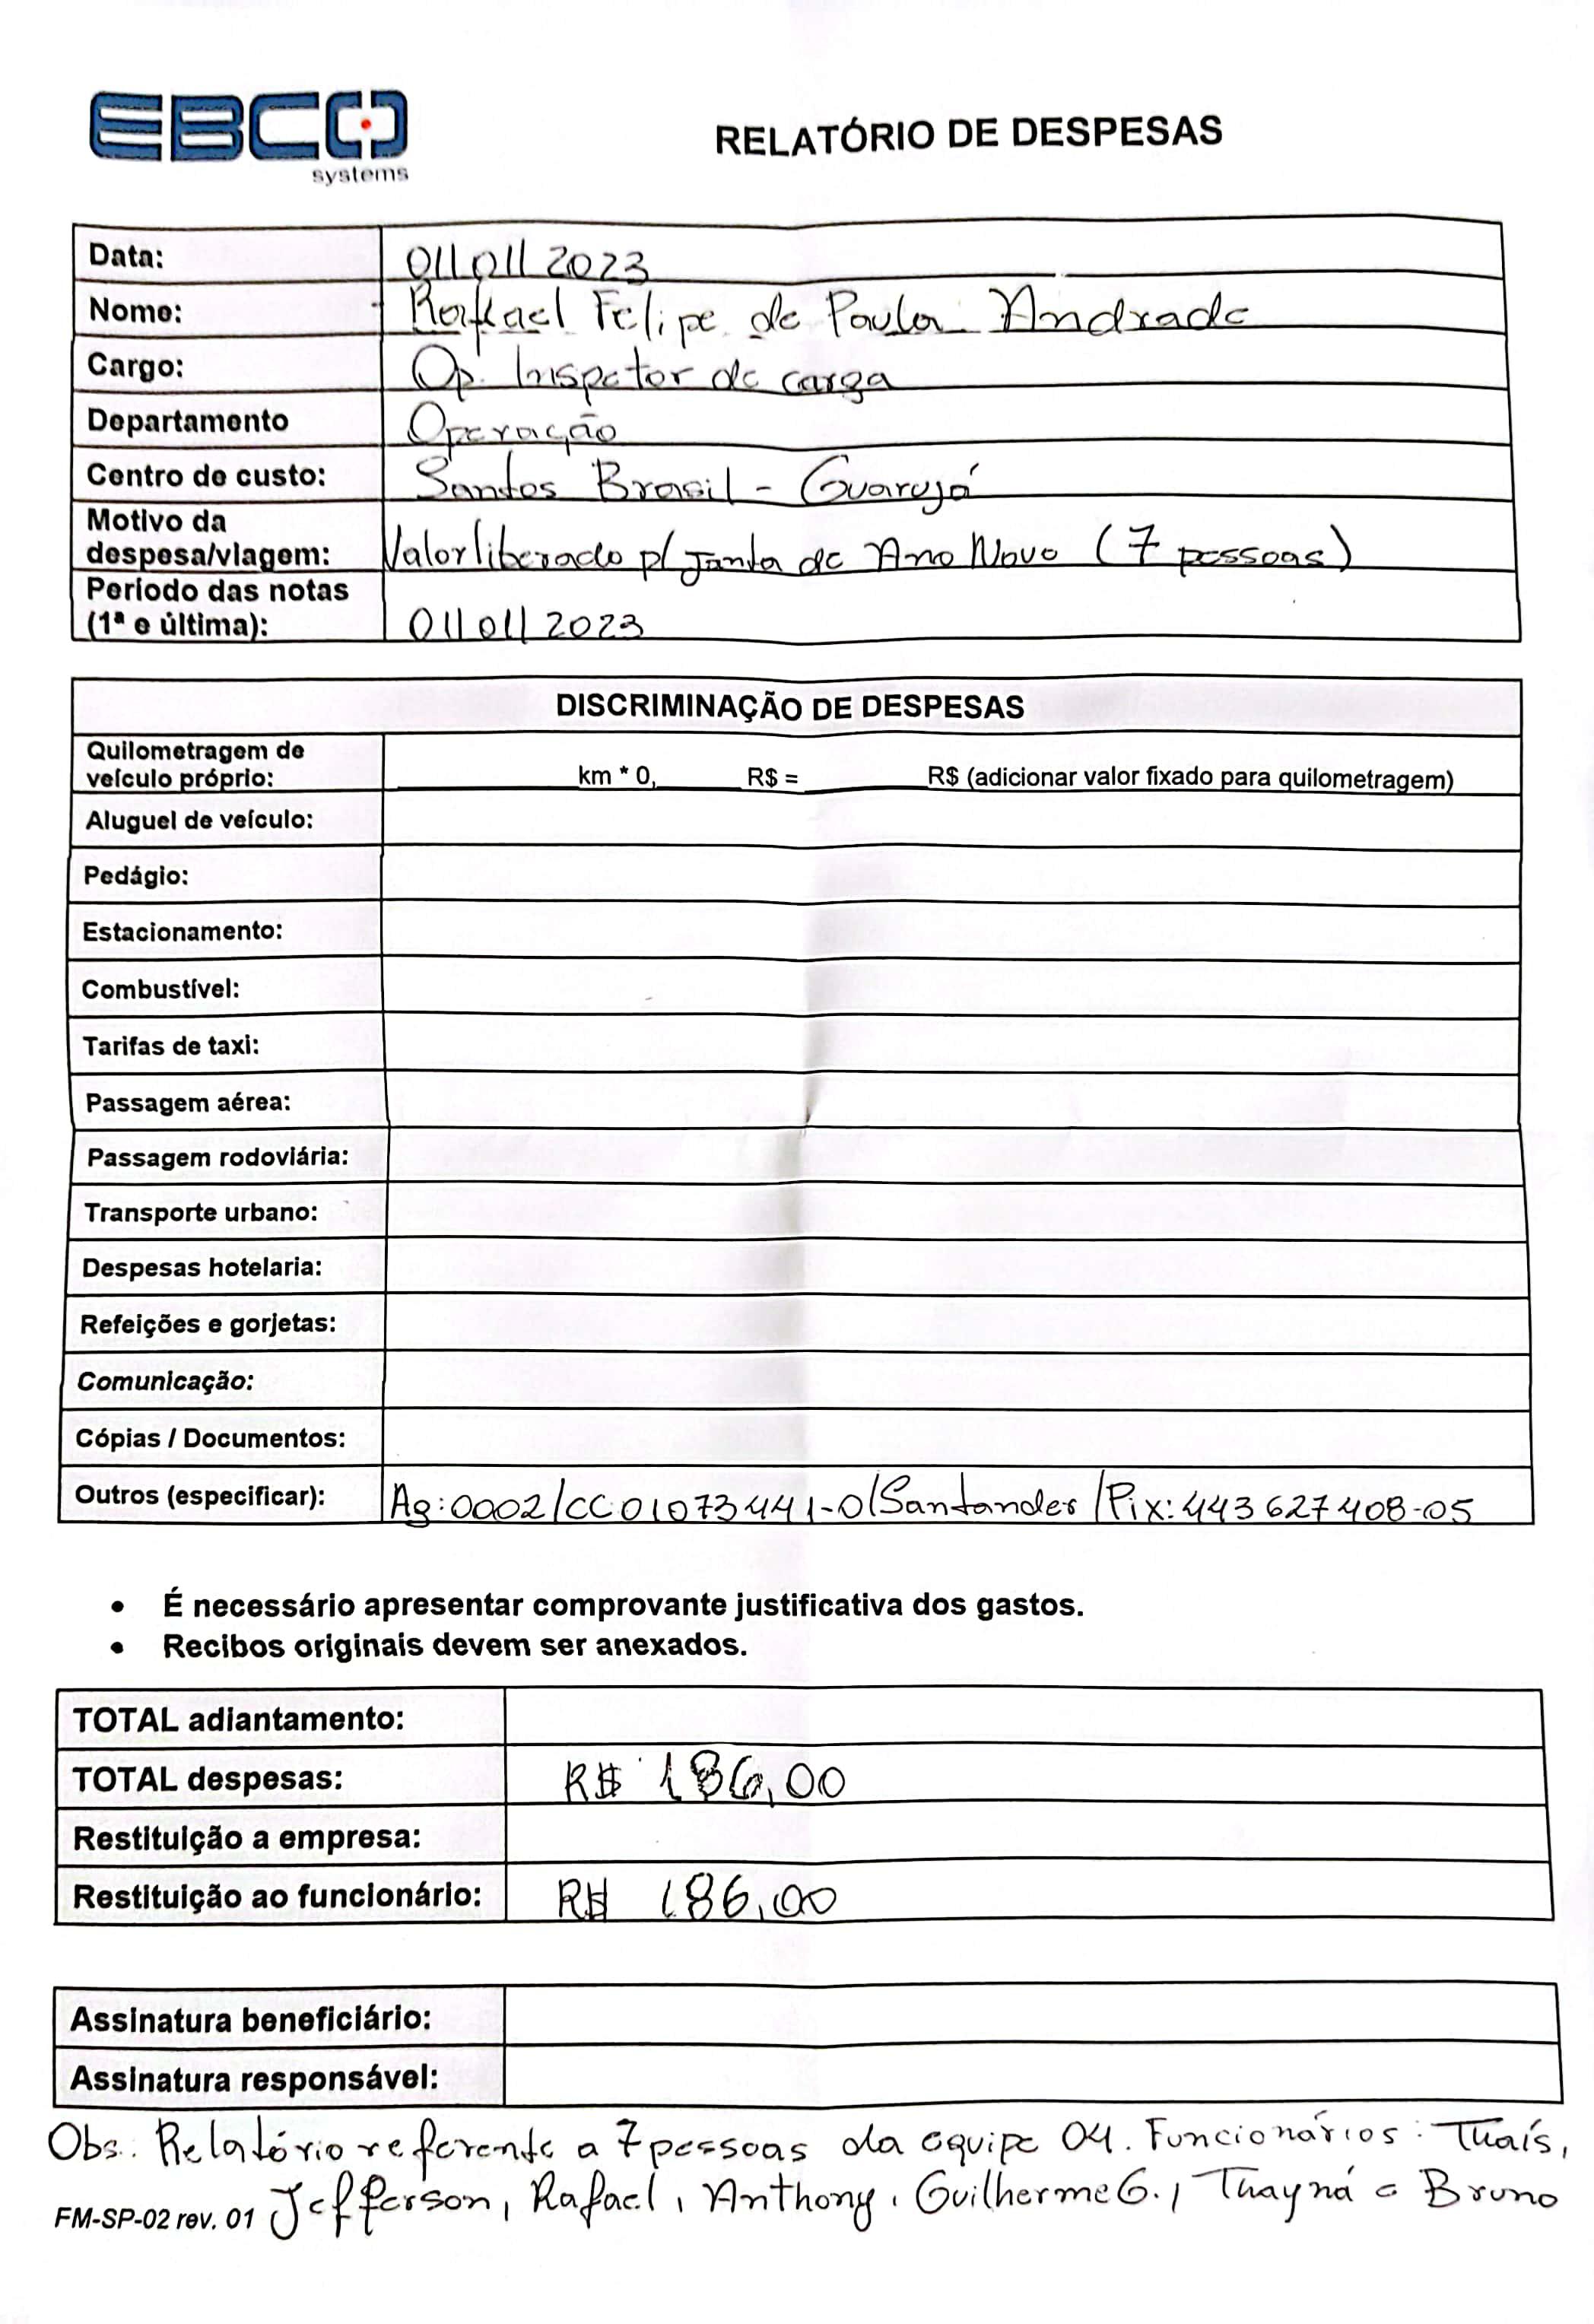 EBCO
systems
RELATÓRIO DE DESPESAS
Data: 01/01/2023
Nome: Rafael Felipe de Paula Andrade
Cargo: Op. Inspetor de carga
Departamento Operação
Centro de custo: Santos Brasil - Guarujá
Motivo da
despesa/viagem: Valor liberado p/ Janta de Ano Novo (7 pessoas)
Período das notas
(1ª e última): 01/01/2023
DISCRIMINAÇÃO DE DESPESAS
Quilometragem de
veículo próprio: km * 0, R$ = R$ (adicionar valor fixado para quilometragem)
Aluguel de veículo:
Pedágio:
Estacionamento:
Combustível:
Tarifas de taxi:
Passagem aérea:
Passagem rodoviária:
Transporte urbano:
Despesas hotelaria:
Refeições e gorjetas:
Comunicação:
Cópias / Documentos:
Outros (especificar): Ag:0002/CC01073441-0/Santander/Pix:443627408-05
• É necessário apresentar comprovante justificativa dos gastos.
• Recibos originais devem ser anexados.
TOTAL adiantamento:
TOTAL despesas: R$ 186,00
Restituição a empresa:
Restituição ao funcionário: R$ 186,00
Assinatura beneficiário:
Assinatura responsável:
Obs.: Relatório referente a 7 pessoas da equipe 04. Funcionários: Thaís,
FM-SP-02 rev. 01 Jefferson, Rafael, Anthony, Guilherme G., Thayná e Bruno